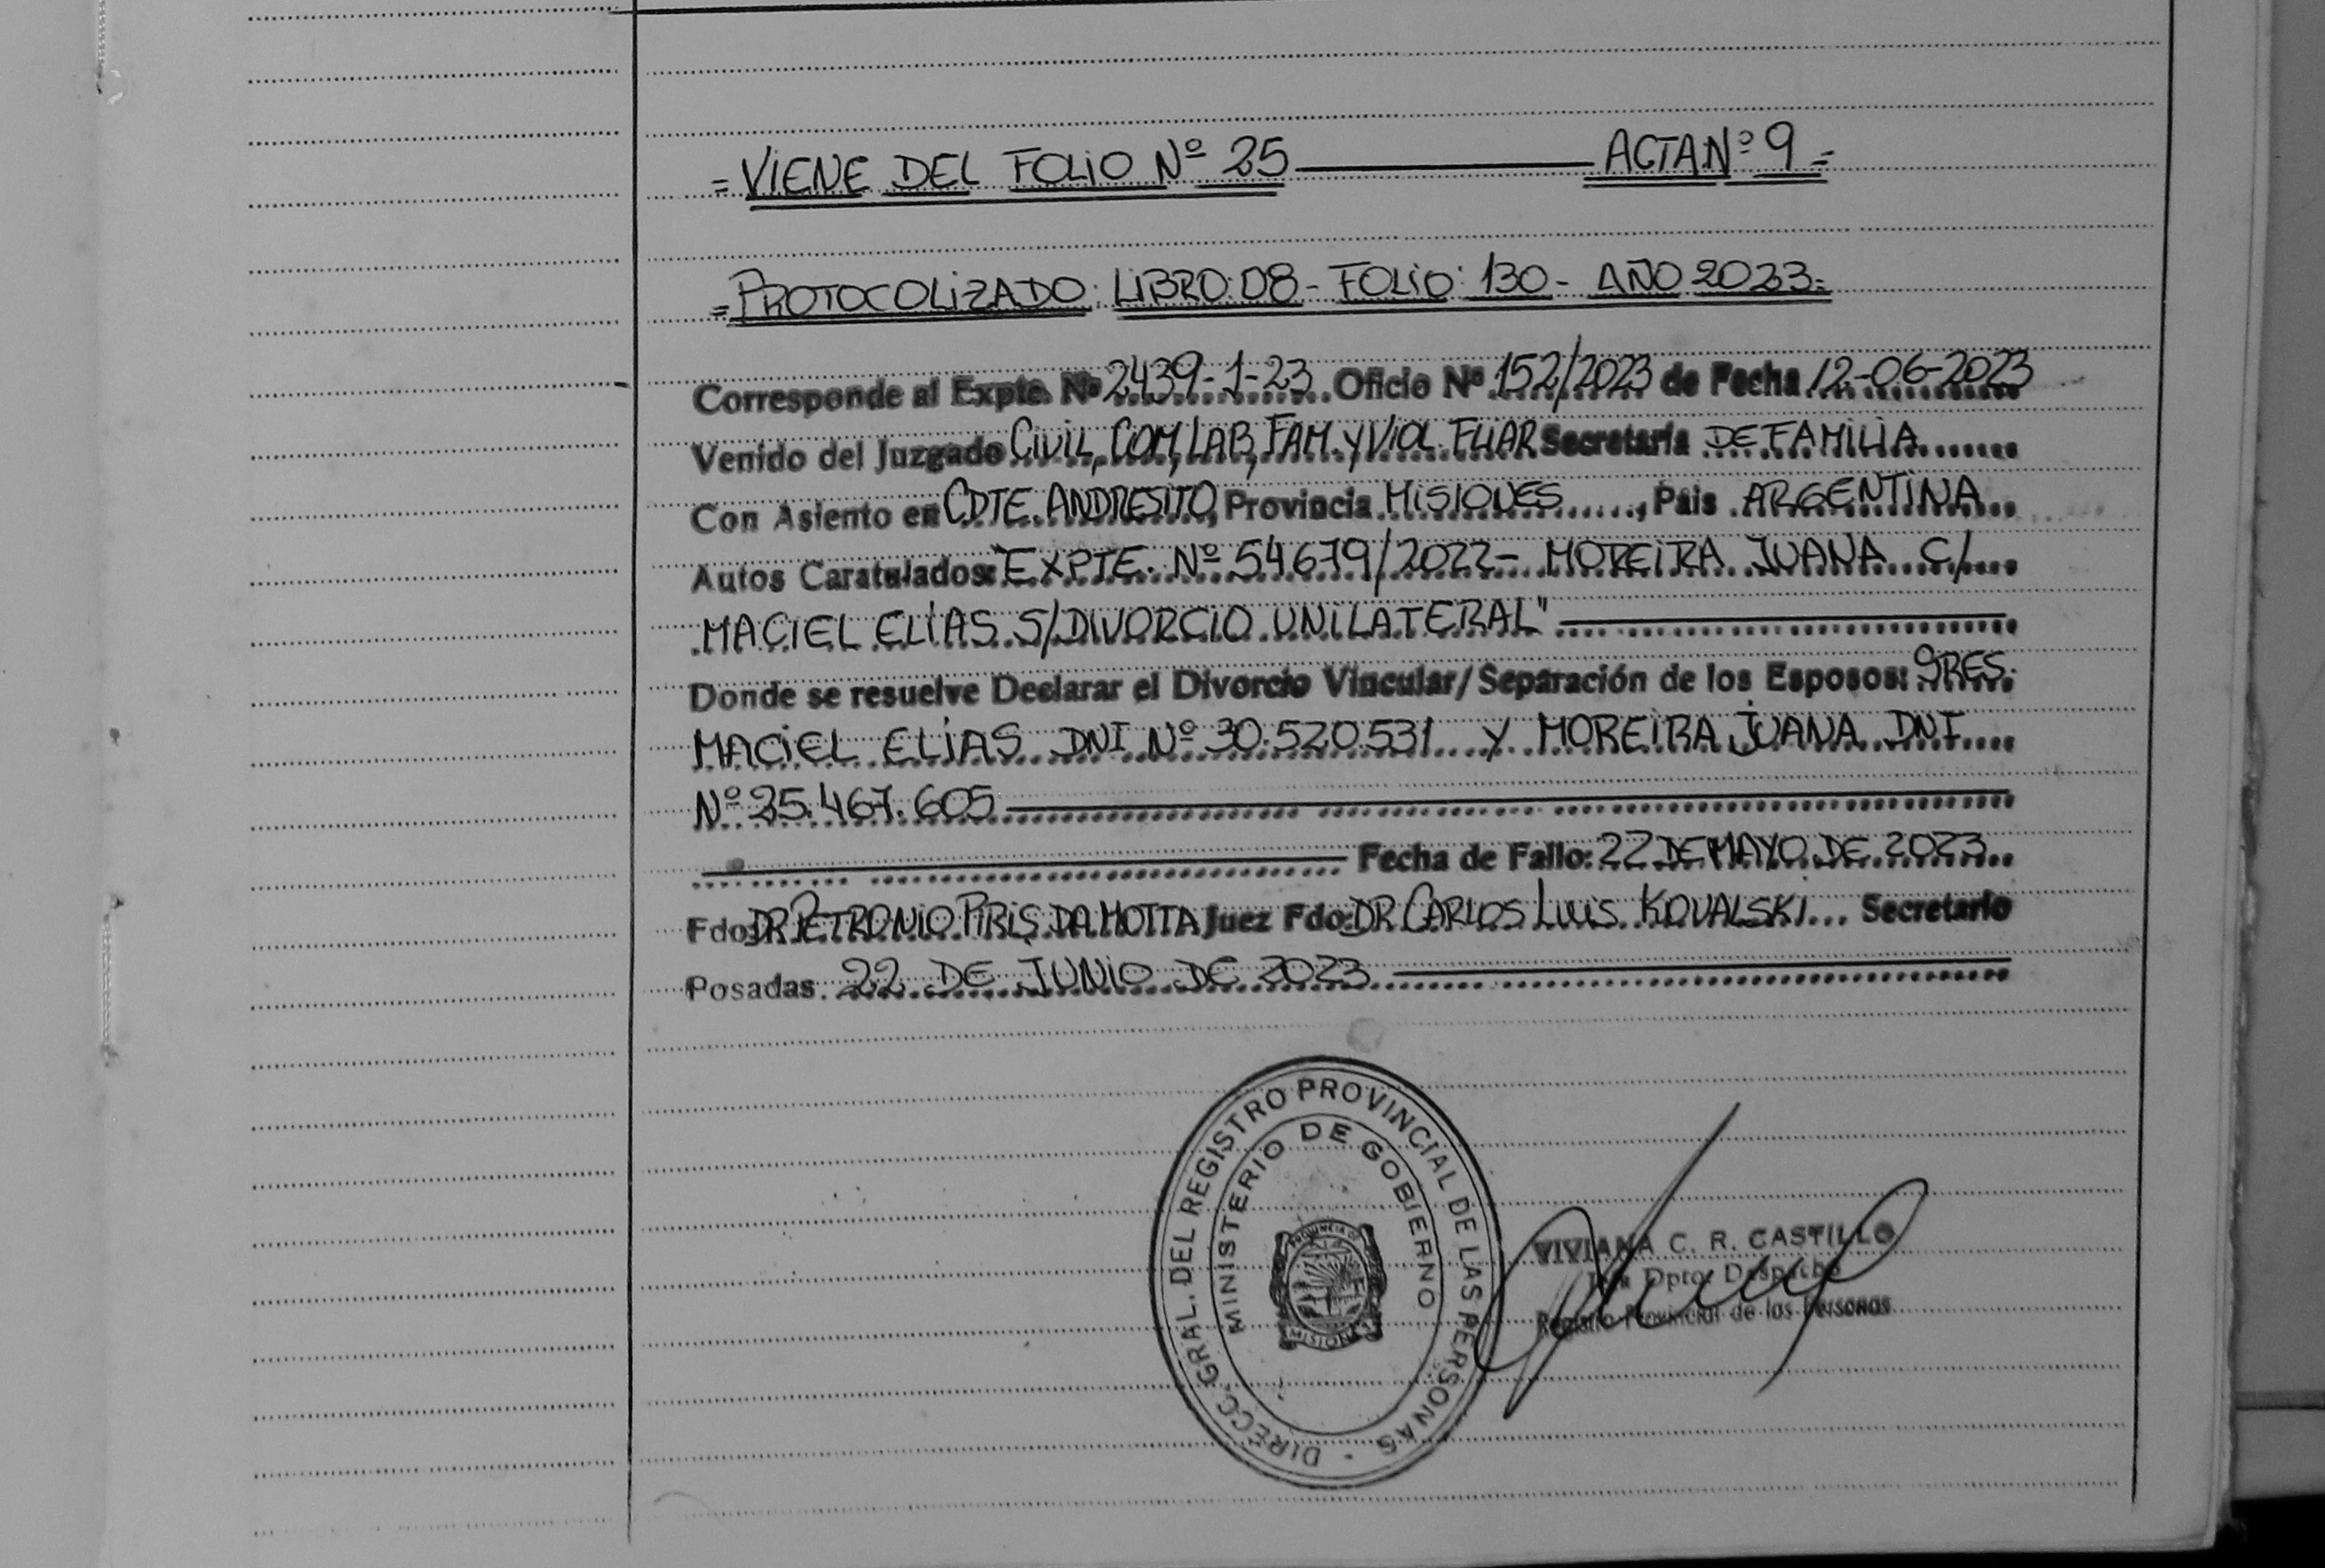 = VIENE DEL FOLIO Nº 25 ACTA Nº 9 =
= PROTOCOLIZADO: LIBRO: 08 - FOLIO: 130 - AÑO 2023 =
Corresponde al Expte. Nº 2439-1-23 Oficio Nº 152/2023 de Fecha 12-06-2023
Venido del Juzgado CIVIL, COM, LAB, FAM. Y VIOL. FLIAR Secretaría DE FAMILIA
Con Asiento en CDTE. ANDRESITO, Provincia MISIONES, País ARGENTINA
Autos Caratulados: "EXPTE. Nº 54679/2022 - MOREIRA JUANA C/
MACIEL ELÍAS S/DIVORCIO UNILATERAL"
Donde se resuelve Declarar el Divorcio Vincular/Separación de los Esposos: SRES.
MACIEL ELÍAS DNI Nº 30.520.531 Y MOREIRA JUANA DNI
Nº 25.467.605
Fecha de Fallo: 22 DE MAYO DE 2023
Fdo: DR PETRONIO PIRIS DA MOTTA Juez Fdo: DR. CARLOS LUIS KOVALSKI Secretario
Posadas 22 DE JUNIO DE 2023
DIRECC. GRAL. DEL REGISTRO PROVINCIAL DE LAS PERSONAS
MINISTERIO DE GOBIERNO
PROVINCIA DE
MISIONES
VIVIANA C. R. CASTILLO
Dpto. Despacho
Registro Provincial de las Personas